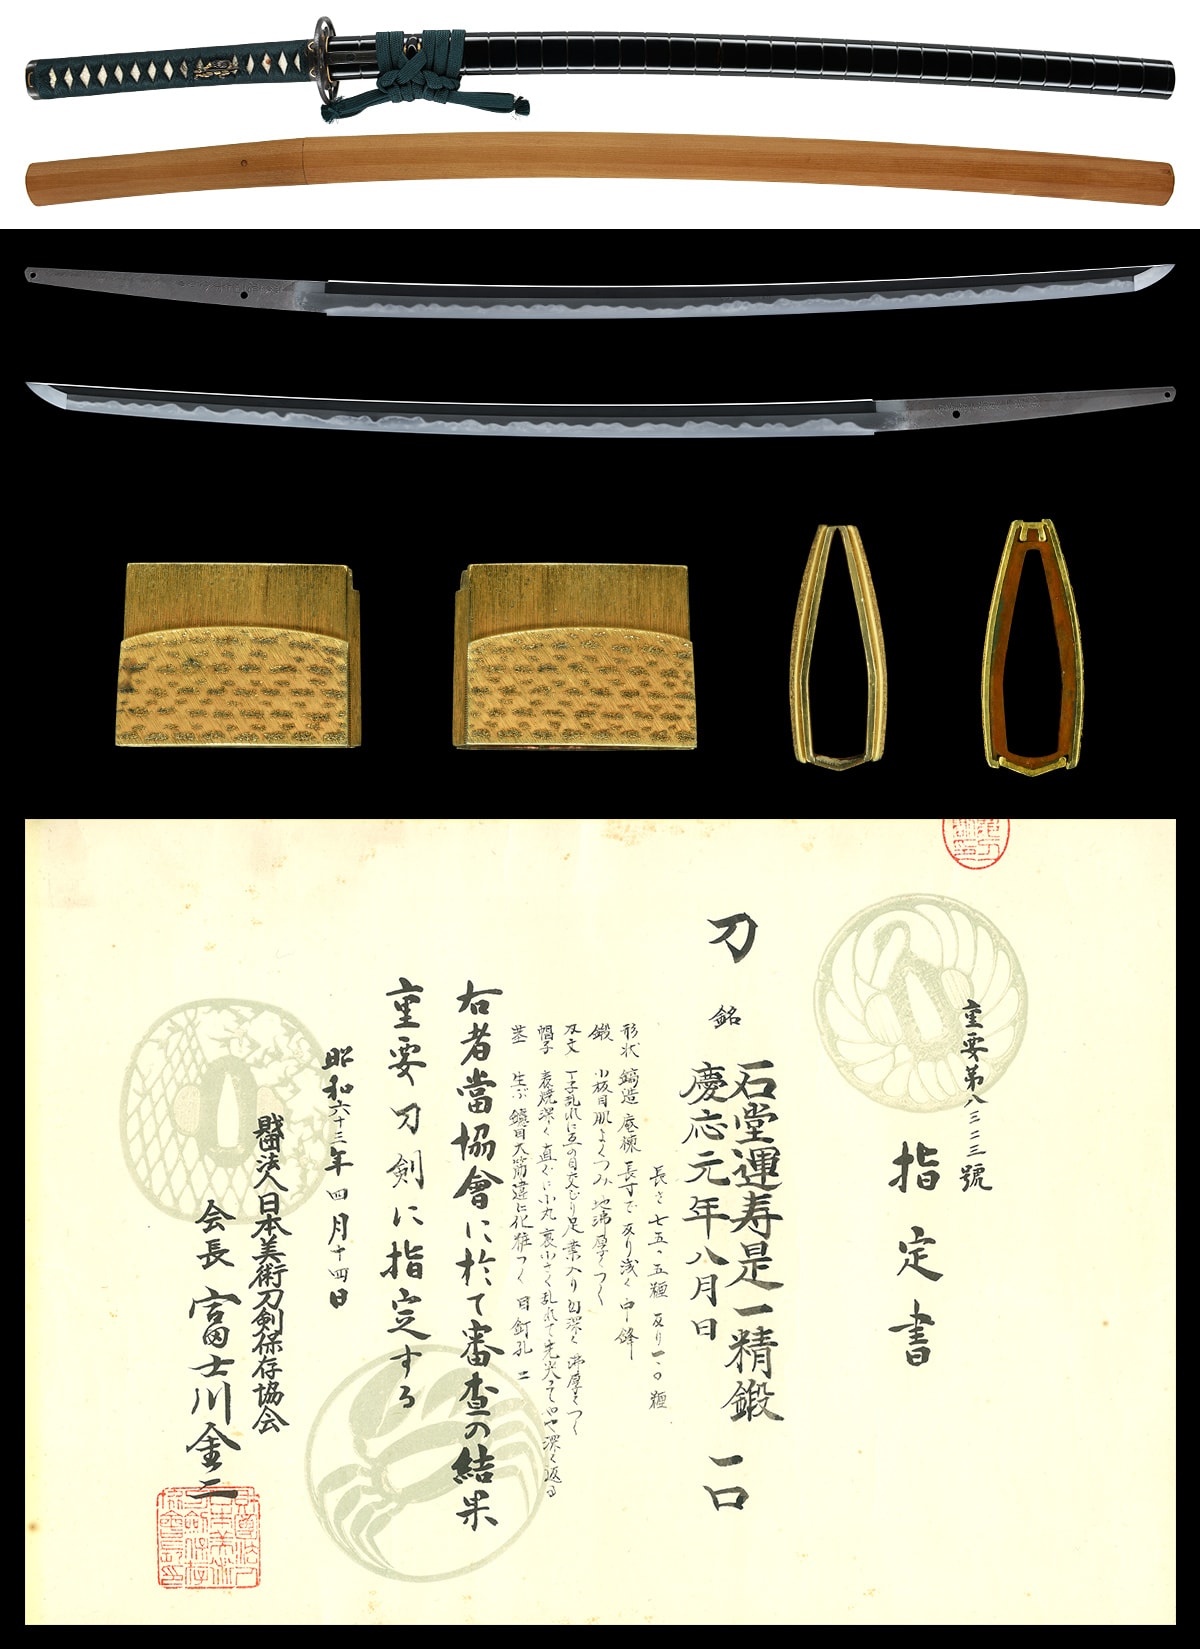 重要第八三二三號
指定書
刀 銘 石堂運寿是一精鍛 一口
慶応元年八月日
長さ 七五・五糎 反り 一・〇糎
形状 鎬造 庵棟 長寸で 反り浅く 中鋒
鍛 小板目肌よくつみ 地沸厚くつく
刃文 丁子乱れに互の目交じり 足 葉入り 匂深く 沸厚くつく
帽子 表焼深く 直ぐに小丸 裏小さく乱れて先尖ってやや深く返る
茎 生ぶ 鑢目大筋違に化粧つく 目釘孔 二
右者當協會に於て審査の結果
重要刀剣に指定する
昭和六十三年四月十四日
財團法人日本美術刀剣保存協会
会長 富士川金二